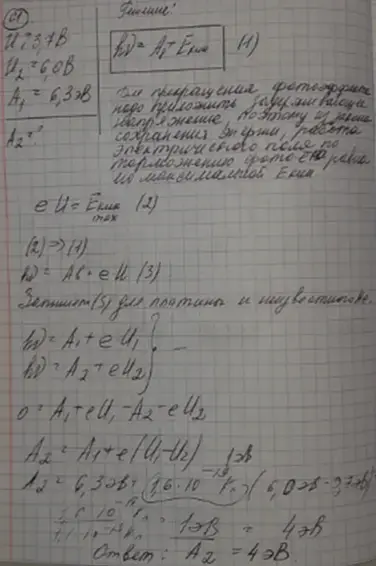 Решение:
U₁ = 3,7 В
U₂ = 6,0 В
A₁ = 6,3 эВ
A₂ = ?
hν = A + Eкин (1)
Для прекращения фотоэффекта
надо приложить задерживающее
напряжение, поэтому из закона
сохранения энергии, работа
электрического поля по
торможению фото равна
максимальной Eкин
eU = Eкин max (2)
(2) => (1)
hν = Aв + eU (3)
Запишем (3) для платины и неизвестного
hν = A₁ + eU₁
hν = A₂ + eU₂
0 = A₁ + eU₁ - A₂ - eU₂
A₂ = A₁ + e(U₁ - U₂)
1эВ
A₂ = 6,3эВ 1,6·10⁻¹⁹ Кл (6,0эВ - 3,7эВ)
= 1эВ = 4эВ
Ответ: A₂ = 4эВ.